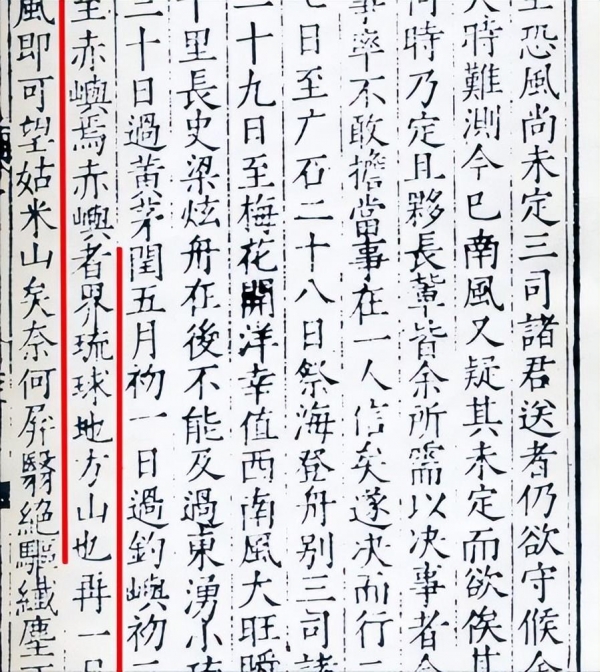 恐風尚未定三司諸君送者仍欲守候今
時難測今巳南風又疑其未定而欲俟其
何時乃定且夥長輩皆余所需以决事者今
事率不敢擔當事在一人信矣遂决而行二
七日至广石二十八日祭海登舟别三司諸
二十九日至梅花開洋幸值西南風大旺瞬
千里長史梁炫舟在後不能及過東湧小琉
三十日過黄茅閏五月初一日過釣嶼初
至赤嶼焉赤嶼者界琉球地方山也再一日
風即可望姑米山矣奈何屏翳絶驅纖塵